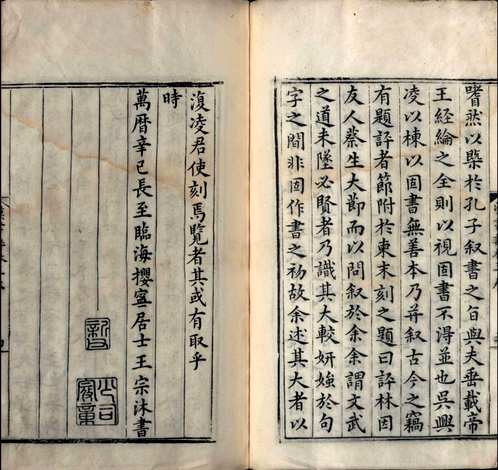 嗜然以槩於孔子叙書之旨與夫垂載帝
王經綸之全則以視固書不得並也吳興
凌以棟以固書無善本乃并叙古今之竊
有題評者節附於柬末刻之題曰評林因
友人蔡生大節而以問叙於余余謂文武
之道未墜必賢者乃識其大較妍媸於句
字之間非固作書之初故余述其大者以
復凌君使刻焉覽者其或有取乎
時
萬曆辛巳長至臨海攖寧居士王宗沐書